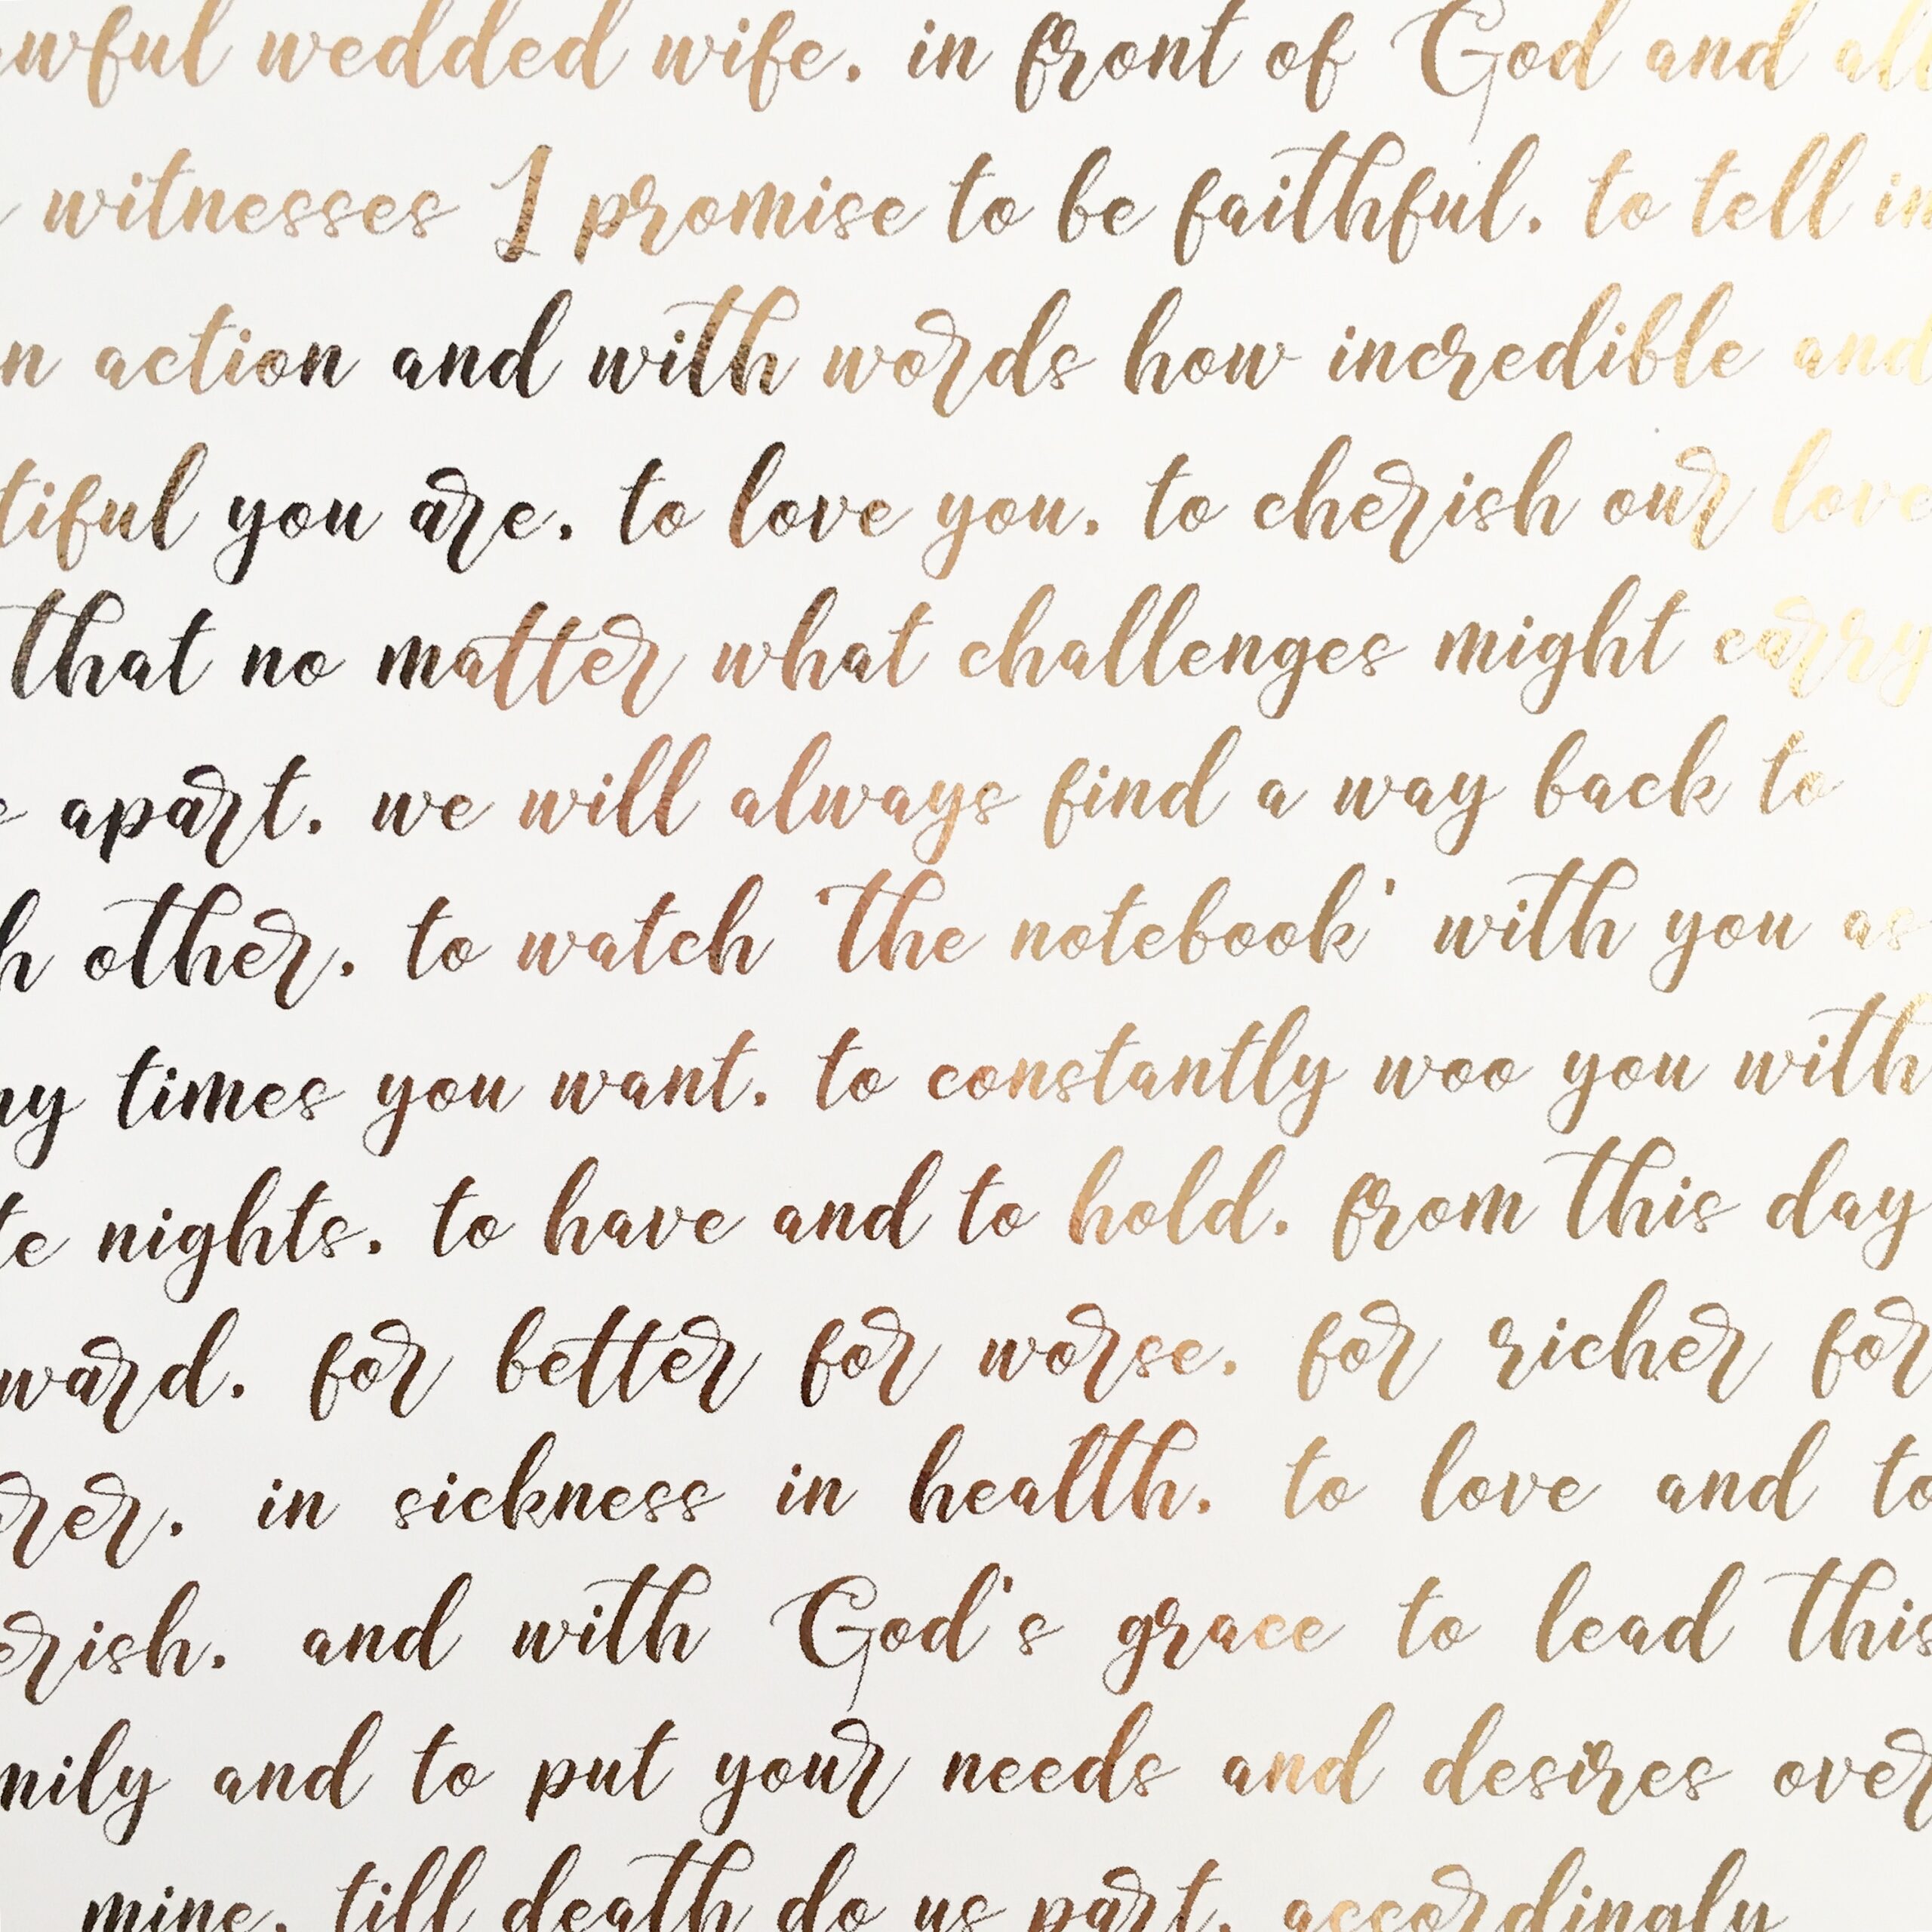 wful wedded wife. in front of God and all
witnesses I promise to be faithful. to tell in
n action and with words how incredible and
tiful you are. to love you. to cherish our love
that no matter what challenges might carry
e apart. we will always find a way back to
h other. to watch 'the notebook' with you as
ny times you want. to constantly woo you with
te nights. to have and to hold. from this day
ward. for better for worse. for richer for
rer. in sickness in health. to love and to
erish. and with God's grace to lead this
mily and to put your needs and desires over
mine. till death do us part. accordingly